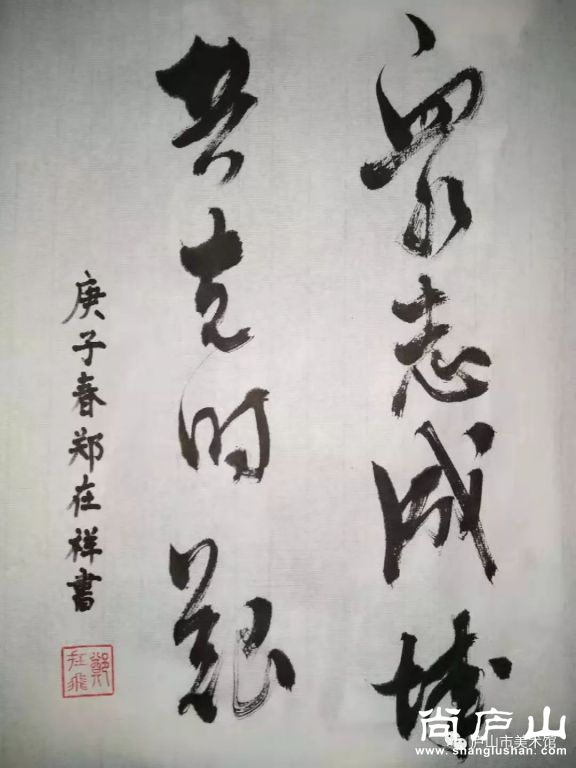 衆志成城
共克时艱
庚子春郑在祥書
尚庐山
庐山市美术馆
www.shanglushan.com